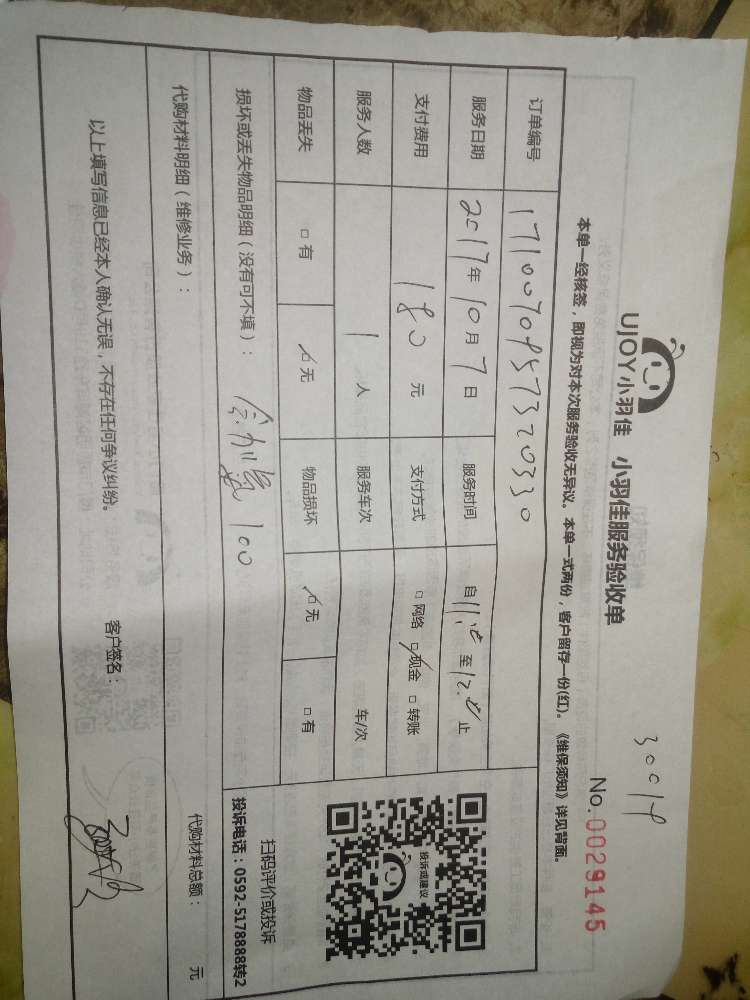 UJOY小羽佳 小羽佳服务验收单
30019
No.0029145
本单一经核签，即视为对本次服务验收无异议。本单一式两份，客户留存一份(红)。《维保须知》详见背面。
订单编号 1710070957320330
服务日期 2017年10月7日 服务时间 自 至 止
支付费用 180元 支付方式 □网络 □现金 □转账
服务人数 1人 服务车次 车/次
物品丢失 □有 □无 物品损坏 □无 □有
损坏或丢失物品明细（没有可不填）： 100
代购材料明细（维修业务）： 代购材料总额： 元
以上填写信息已经本人确认无误，不存在任何争议纠纷。 客户签名：
投诉或建议
扫码评价或投诉
投诉电话：0592-5178888转2